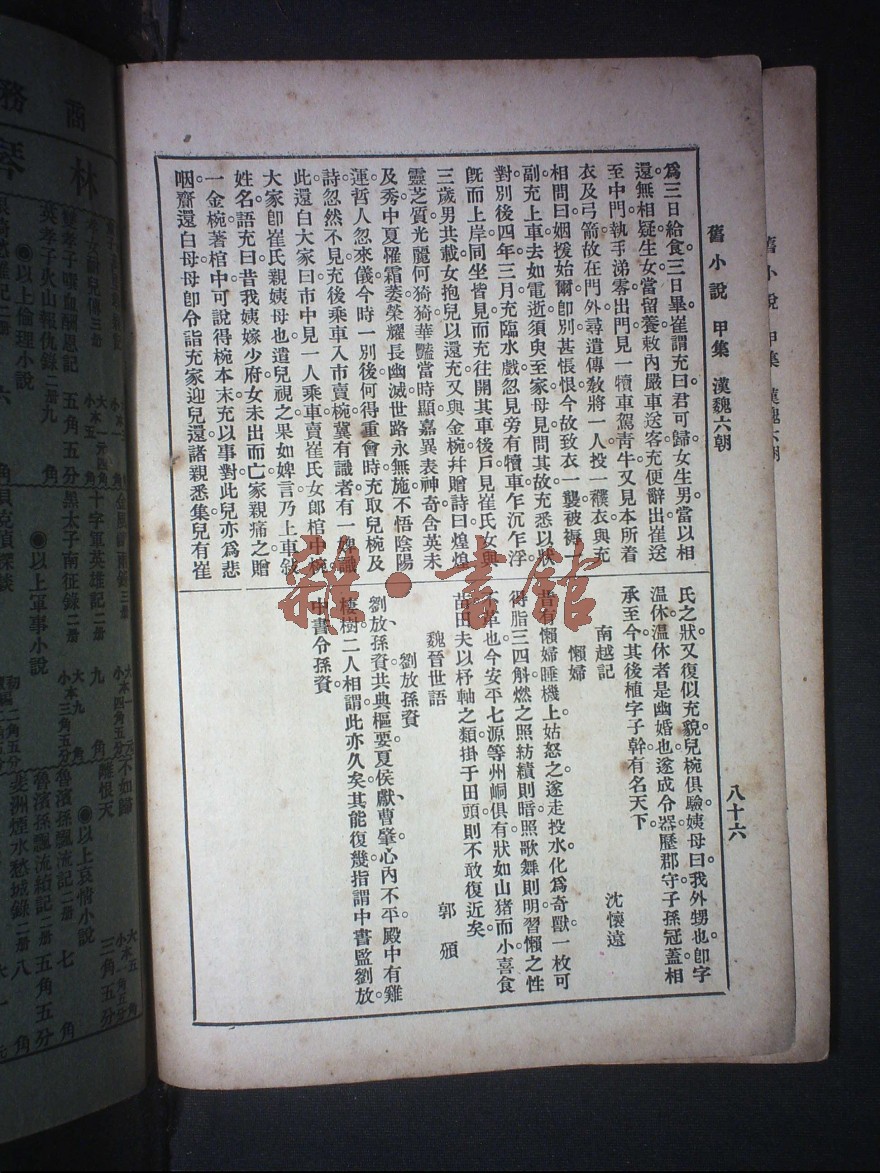 舊小說 甲集 漢魏六朝
八十六
爲三日給食三日畢崔謂充曰君可歸女生男當以相
還無相疑生女當留養敕內嚴車送客充便辭出崔送
至中門執手涕零出門見一犢車駕靑牛又見本所着
衣及弓箭故在門外尋遣傳敎將一人投一襆衣與充
相問曰姻援始爾卽別甚悵恨今故致衣一襲被褥一
副充上車去如電逝須臾至家母見問其故充悉以狀
對別後四年三月充臨水戲忽見旁有犢車乍沉乍浮
旣而上岸同坐皆見而充往開其車後戶見崔氏女與
三歲男共載女抱兒以還充又與金椀幷贈詩曰煌煌
靈芝質光麗何猗猗華豔當時顯嘉異表神奇含英未
及秀中夏罹霜萎榮耀長幽滅世路永無施不悟陰陽
運哲人忽來儀今時一別後何得重會時充取兒椀及
詩忽然不見充後乘車入市賣椀冀有識者有一婢識
此還白大家曰市中見一人乘車賣崔氏女郞棺中椀
大家卽崔氏親姨母也遣兒視之果如婢言乃上車敍
姓名語充曰昔我姨嫁少府女未出而亡家親痛之贈
一金椀著棺中可說得椀本末充以事對此兒亦爲悲
咽齎還白母母卽令詣充家迎兒還諸親悉集兒有崔
氏之狀又復似充貌兒椀俱驗姨母曰我外甥也卽字
溫休溫休者是幽婚也遂成令器歷郡守子孫冠蓋相
承至今其後植字子幹有名天下
南越記 沈懷遠
懶婦
昔有懶婦睡機上姑怒之遂走投水化爲奇獸一枚可
得脂三四斛燃之照紡績則暗照歌舞則明習懶之性
革也今安平七源等州峒俱有狀如山猪而小喜食
苗田夫以杼軸之類掛于田頭則不敢復近矣
魏晉世語 郭頒
劉放孫資
劉放孫資共典樞要夏侯獻曹肇心內不平殿中有雞
棲樹二人相謂此亦久矣其能復幾指謂中書監劉放
中書令孫資
雜·書館
舊小說 甲集 漢魏六朝
商務
林琴
孝女耐兒傳 三册
雙孝子噀血酬恩記 二册 五角五分
英孝子火山報仇錄 二册 九角
◉以上倫理小說
十字軍英雄記 二册 九角
黑太子南征錄 二册
◉以上軍事小說
貝克偵探談
不如歸
離恨天
◉以上哀情小說
魯濱孫飄流記 二册 七角
魯濱孫飄流續記 二册 五角五分
斐洲煙水愁城錄 二册 八角